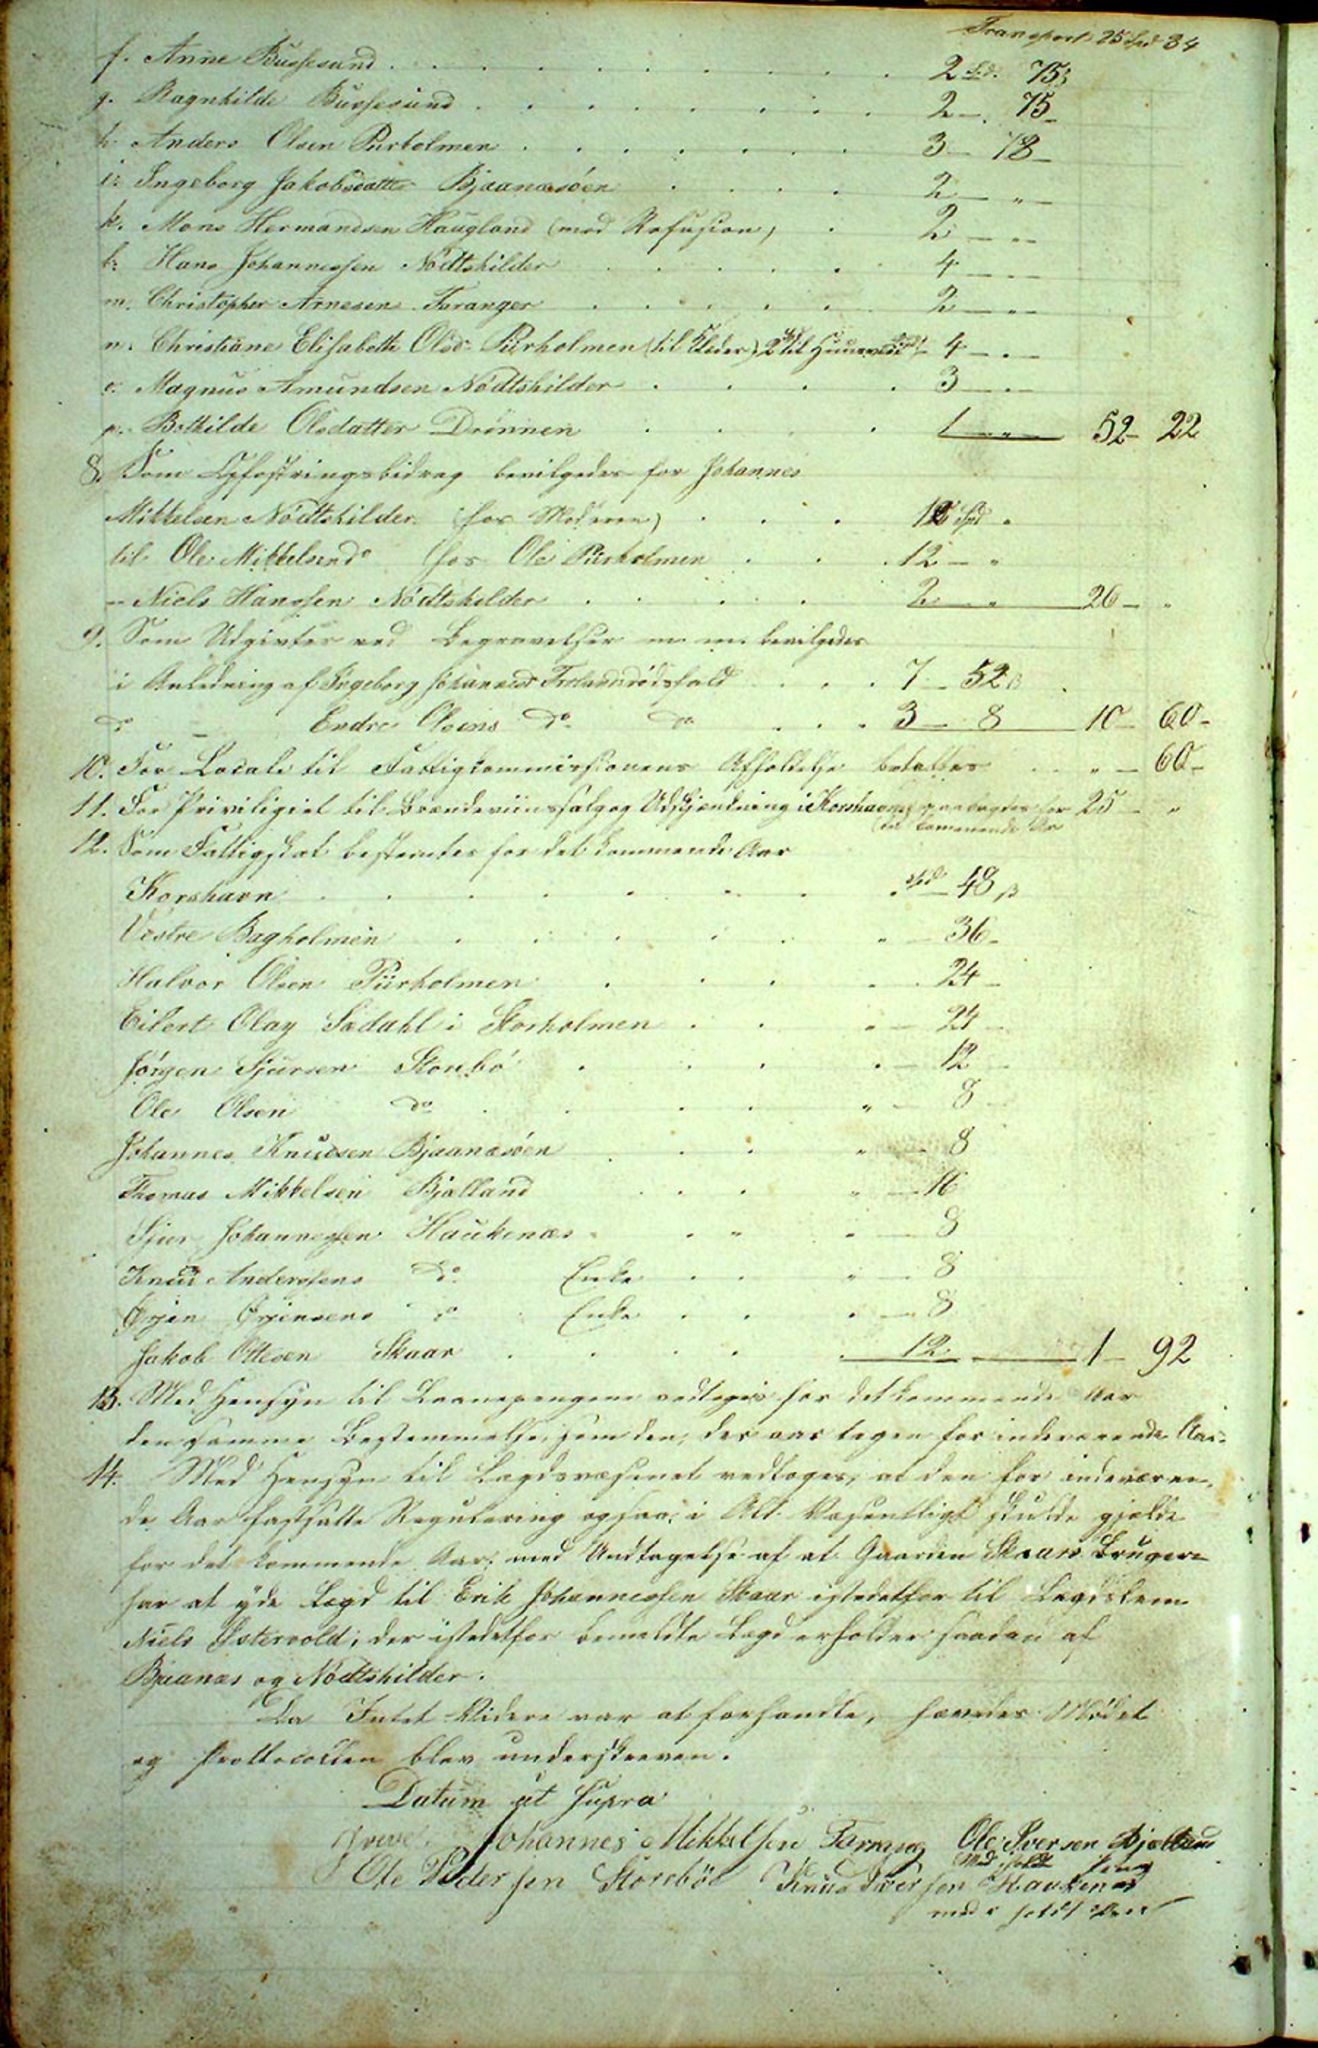 Transport 25 Spd 34
f. Anne Bussesund . . . 2 Spd. 75 ß
g. Ragnhilde Bussesund . . . 2 — 75 —
h. Anders Olsen Purholmen . . . 3 — 78 —
i. Ingeborg Jakobsdatter Bjaanæsöen . . . 2 — „ —
k. Mons Hermandsen Haugland (mod Refusion) . 2 — „ —
l. Hans Johannessen Nödtskilder . . . 4 — „ —
m. Christopher Arnesen Faranger . . . 2 — „ —
n. Christiane Elisabeth Olsd. Purholmen (til Klæder) 2 Spd til Huusværelse 4 — „ —
o. Magnus Amundsen Nödtskilder . . . 3 — „ —
p. Bothilde Olsdatter Drönnen . . . 1 — „ — 52 — 22
8. Som Opfostringsbidrag bevilgedes for Johannes
Mikkelsen Nödtskilder (hos Moderen) . . . 12 Spd „
til Ole Mikkelsen do hos Ole Purholmen . . . 12 — „
— Niels Hanssen Nödtskilder . . . 2 — „ — 26 — „
9. Som Udgivter ved Begravelser m. m. bevilgedes
i Anledning af Ingeborg Johannesd. Dødsfald . . . 7 — 52 ß
do — Endre Olsens do do . . . 3 — 8 — 10 — 60 —
10. For Locale til Fattigkommissionens Afholdelse betaltes . . . „ — 60 —
11. For Priviligiet til Brændeviinssalg og Udskjænkning i Korshavn for 25 — „
det kommende Aar
12. Som Fattigskat bestemtes for det kommende Aar
Korshavn . . . Spd 48 ß
Vestre Bagholmen . . . „ — 36 —
Halvor Olsen Purholmen . . . 24 —
Eilert Olay Sædahl i Storholmen . . . „ — 24 —
Jörgen Sjursen Storebö . . . „ — 12 —
Ole Olsen do . . . „ — 8 —
Johannes Knudsen Bjaanæsöen . . . „ — 8
Thomas Mikkelsen Bjelland . . . „ — 16
Sjur Johannessen Haukenæs . . . „ — 8
Knud Anderssens do Enke . . . „ — 8
Örjen Örjensens do Enke . . . „ — 8
Jakob Ottesen Skaar . . . 12 — 1 — 92
13. Med Hensyn til Laanepengene vedtoges for det kommende Aar
den samme Bestemmelse, som den, der var tagen for indeværende Aar.
14. Med Hensyn til Lægdsvæsenet vedtoges, at den for indeværen-
de Aar fastsatte Regulering ogsaa i Alt Væsentligt skulde gjælde
for det kommende Aar, med Undtagelse af at Gaarden Skaars Brugere
har at yde Lægd til Erik Johannessen Skaar istedetfor til Lægdslem
Niels Östervold, der istedetfor bemeldte Lægd erholder saadan af
Bjaanæs og Nödtskilder.
Da Intet Videre var at forhandle, hævedes Mödet
og Prottocollen blev underskreven.
Datum ut supra
Johannes Mikkelsen Ole Iversen Bjelland
Med holdt Pen
Ole Pedersen Storebö Knud Iversen Haukenæs
med holdt Pen